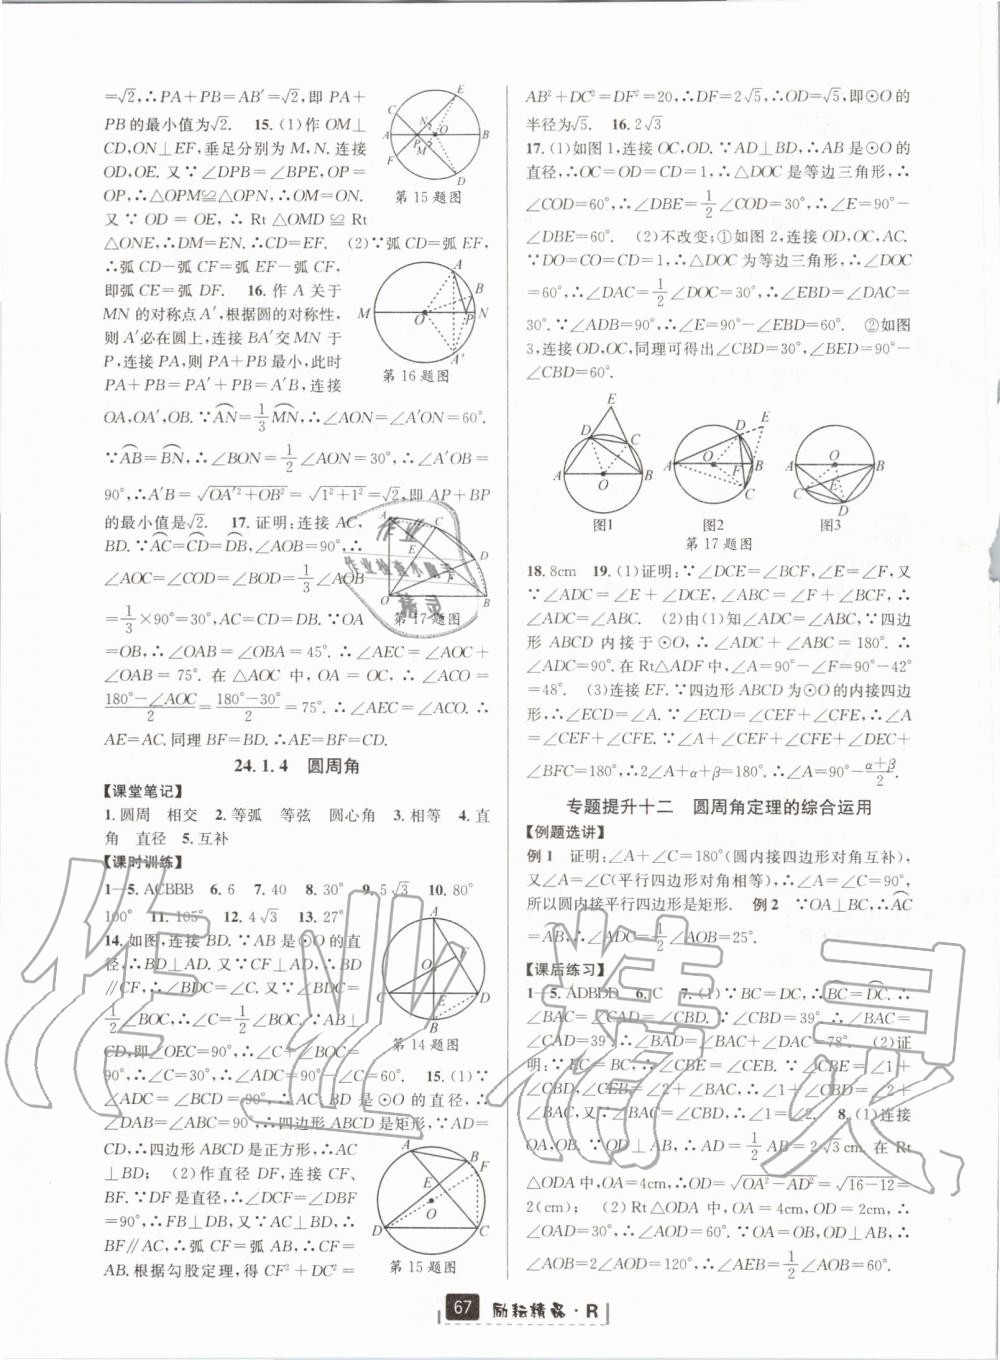 =√2,∴PA+PB=AB′=√2,即 PA+
PB的最小值为√2. 15.(1)作 OM⊥
CD,ON⊥EF,垂足分别为 M、N.连接
OD,OE.又∵∠DPB=∠BPE,OP=
OP,∴△OPM≌△OPN,∴OM=ON.
又∵OD=OE,∴Rt△OMD≌Rt
△ONE,∴DM=EN.∴CD=EF. (2)∵弧CD=弧EF,
∴弧CD-弧CF=弧EF-弧CF,
即弧CE=弧DF. 16.作A关于
MN的对称点A′,根据圆的对称性,
则A′必在圆上,连接BA′交MN于
P,连接PA,则PA+PB最小,此时
PA+PB=PA′+PB=A′B,连接
OA,OA′,OB.∵⌒AN=1/3⌒MN,∴∠AON=∠A′ON=60°.
∵⌒AB=⌒BN,∴∠BON=1/2∠AON=30°,∴∠A′OB=
90°,∴A′B=√(OA′²+OB²)=√(1²+1²)=√2,即AP+BP
的最小值是√2. 17.证明:连接AC,
BD.∵⌒AC=⌒CD=⌒DB,∠AOB=90°,∴
∠AOC=∠COD=∠BOD=1/3∠AOB
=1/3×90°=30°,AC=CD=DB.∵OA
=OB,∴∠OAB=∠OBA=45°.∴∠AEC=∠AOC+
∠OAB=75°.在△AOC中,OA=OC,∴∠ACO=
(180°-∠AOC)/2=(180°-30°)/2=75°.∴∠AEC=∠ACO.∴
AE=AC.同理BF=BD.∴AE=BF=CD.
第15题图
第16题图
第17题图
24.1.4 圆周角
【课堂笔记】
1.圆周 相交 2.等弧 等弦 圆心角 3.相等 4.直
角 直径 5.互补
【课时训练】
1—5.ACBBB 6.6 7.40 8.30° 9.5√3 10.80°
100° 11.105° 12.4√3 13.27°
14.如图,连接BD.∵AB是⊙O的直
径,∴BD⊥AD.又∵CF⊥AD,∴BD
∥CF,∴∠BDC=∠C.又∵∠BDC=
1/2∠BOC,∴∠C=1/2∠BOC.∵AB⊥
CD,即∠OEC=90°,∴∠C+∠BOC=
90°,∴∠C=30°,∴∠ADC=90°-∠C=60°. 15.(1)∵
∠ADC=∠BCD=90°,∴AC、BD是⊙O的直径,∴
∠DAB=∠ABC=90°,∴四边形ABCD是矩形,∵AD=
CD,∴四边形ABCD是正方形,∴AC
⊥BD; (2)作直径DF,连接CF、
BF.∵DF是直径,∴∠DCF=∠DBF
=90°,∴FB⊥DB,又∵AC⊥BD,∴
BF∥AC,∴弧CF=弧AB,∴CF=
AB.根据勾股定理,得CF²+DC²=
第14题图
第15题图
AB²+DC²=DF²=20,∴DF=2√5,∴OD=√5,即⊙O的
半径为√5. 16.2√3
17.(1)如图1,连接OC,OD.∵AD⊥BD,∴AB是⊙O的
直径,∴OC=OD=CD=1,∴△DOC是等边三角形,∴
∠COD=60°,∴∠DBE=1/2∠COD=30°,∴∠E=90°-
∠DBE=60°. (2)不改变;①如图2,连接OD,OC,AC.
∵DO=CO=CD=1,∴△DOC为等边三角形,∴∠DOC
=60°,∴∠DAC=1/2∠DOC=30°,∴∠EBD=∠DAC=
30°.∵∠ADB=90°,∴∠E=90°-∠EBD=60°. ②如图
3,连接OD,OC,同理可得出∠CBD=30°,∠BED=90°-
∠CBD=60°.
图1 图2 图3
第17题图
18.8cm 19.(1)证明:∵∠DCE=∠BCF,∠E=∠F,又
∵∠ADC=∠E+∠DCE,∠ABC=∠F+∠BCF,∴
∠ADC=∠ABC. (2)由(1)知∠ADC=∠ABC,∵四边
形ABCD内接于⊙O,∴∠ADC+∠ABC=180°.∴
∠ADC=90°.在Rt△ADF中,∠A=90°-∠F=90°-42°
=48°. (3)连接EF.∵四边形ABCD为⊙O的内接四边
形,∴∠ECD=∠A.∵∠ECD=∠CEF+∠CFE,∴∠A
=∠CEF+∠CFE.∵∠A+∠CEF+∠CFE+∠DEC+
∠BFC=180°,∴2∠A+α+β=180°,∴∠A=90°-(α+β)/2.
专题提升十二 圆周角定理的综合运用
【例题选讲】
例1 证明:∠A+∠C=180°(圆内接四边形对角互补),
又∠A=∠C(平行四边形对角相等),∴∠A=∠C=90°,
所以圆内接平行四边形是矩形. 例2 ∵OA⊥BC,∴⌒AC
=⌒AB,∴∠ADC=1/2∠AOB=25°.
【课后练习】
1—5.ADBDD 6.C 7.(1)∵BC=DC,∴⌒BC=⌒DC.∴
∠BAC=∠CAD=∠CBD.∵∠CBD=39°.∴∠BAC=
∠CAD=39°.∴∠BAD=∠BAC+∠DAC=78°. (2)证
明:∵EC=BC,∴∠CBE=∠CEB.∵∠CBE=∠1+
∠CBD,∠CEB=∠2+∠BAC,∴∠1+∠CBD=∠2+
∠BAC,又∵∠BAC=∠CBD,∴∠1=∠2. 8.(1)连接
OA,OB.∵OD⊥AB,∴AD=1/2AB=2√3cm.在Rt
△ODA中,OA=4cm,∴OD=√(OA²-AD²)=√(16-12)=
2(cm); (2)Rt△ODA中,OA=4cm,OD=2cm,∴
∠OAD=30°,∴∠AOD=60°.∵OA=OB,OD⊥AB,∴
∠AOB=2∠AOD=120°,∴∠AEB=1/2∠AOB=60°.
67 励耘精品·R
作业精灵